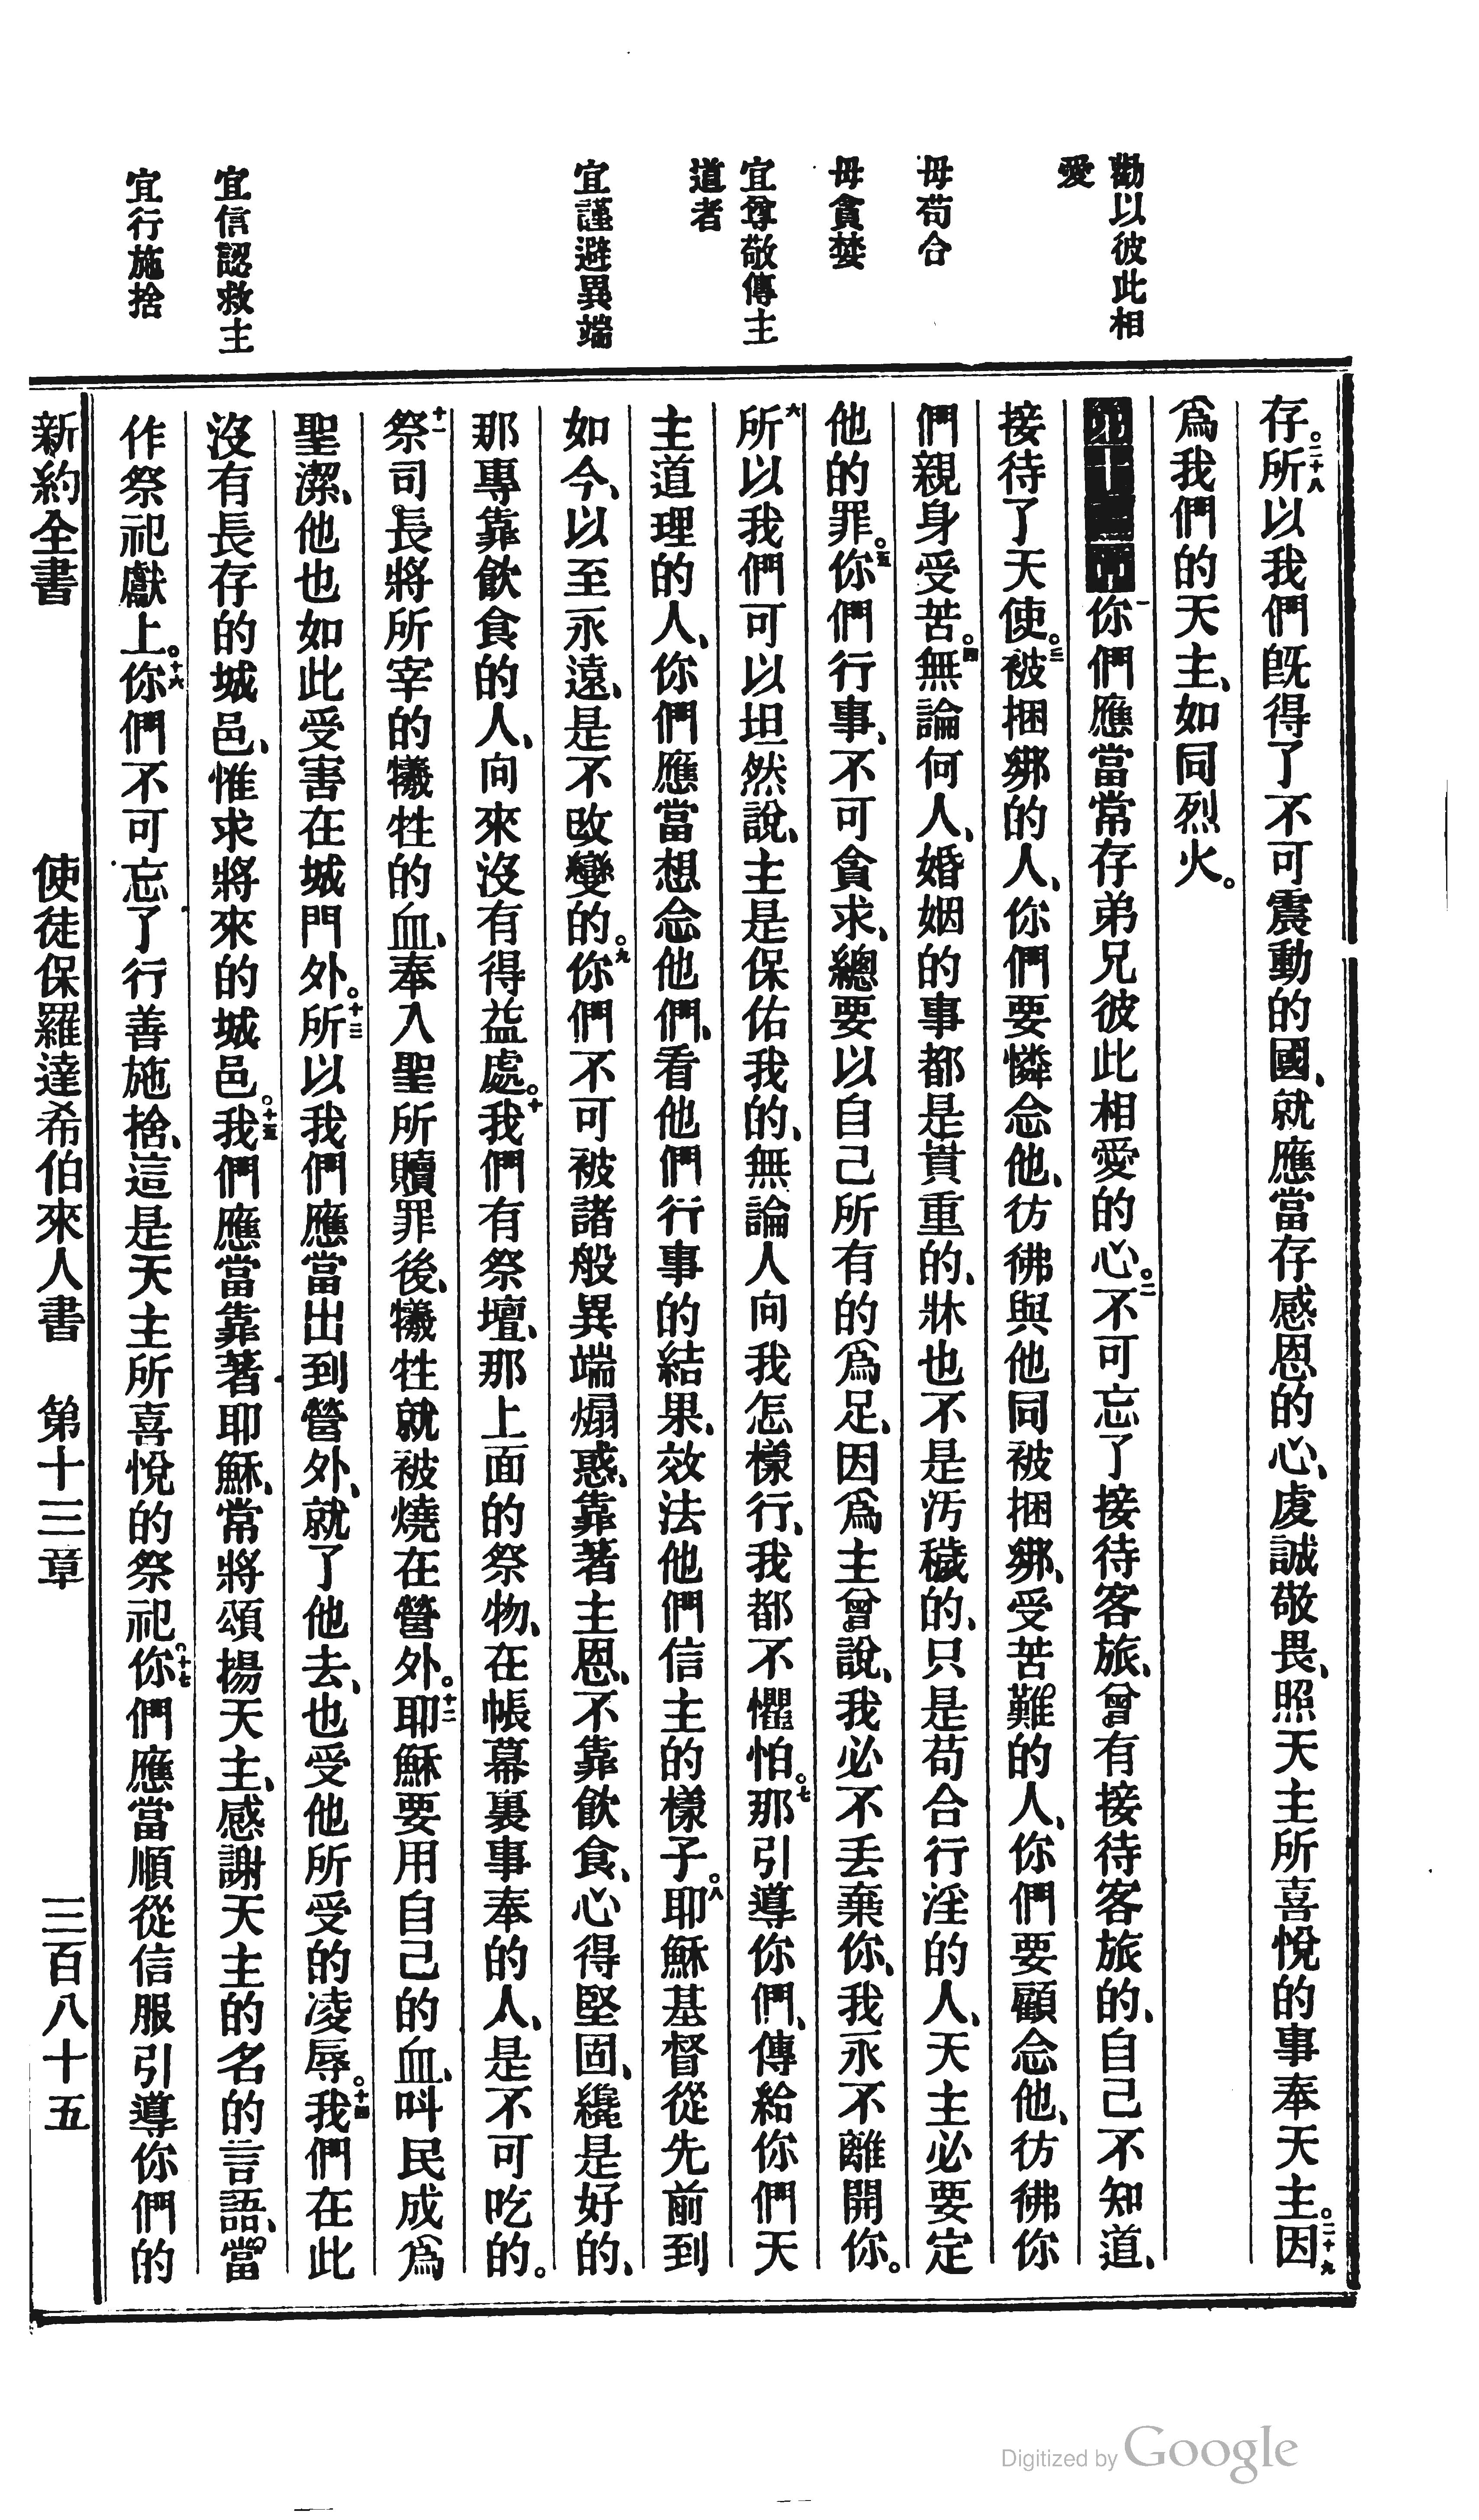 勸以彼此相
愛
毋苟合
毋貪婪
宜尊敬傳主
道者
宜謹避異端
宜信認救主
宜行施捨
存。二十八所以我們既得了不可震動的國、就應當存感恩的心、虔誠敬畏、照天主所喜悅的事奉天主。二十九因
爲我們的天主、如同烈火。
一你們應當常存弟兄彼此相愛的心。二不可忘了接待客旅、曾有接待客旅的、自己不知道、
接待了天使。三被捆綁的人、你們要憐念他、彷彿與他同被捆綁、受苦難的人、你們要顧念他、彷彿你
們親身受苦。四無論何人、婚姻的事都是貴重的、牀也不是汚穢的、只是苟合行淫的人、天主必要定
他的罪。五你們行事、不可貪求、總要以自己所有的爲足、因爲主曾說、我必不丟棄你、我永不離開你。
六所以我們可以坦然說、主是保佑我的、無論人向我怎樣行、我都不懼怕。七那引導你們、傳給你們天
主道理的人、你們應當想念他們、看他們行事的結果、效法他們信主的樣子。八耶穌基督從先前到
如今、以至永遠、是不改變的。九你們不可被諸般異端煽惑、靠著主恩、不靠飲食、心得堅固、纔是好的、
那專靠飲食的人、向來沒有得益處。十我們有祭壇、那上面的祭物、在帳幕裏事奉的人、是不可吃的。
十一祭司長將所宰的犧牲的血、奉入聖所贖罪後、犧牲就被燒在營外。十二耶穌要用自己的血、叫民成爲
聖潔、他也如此受害在城門外。十三所以我們應當出到營外、就了他去、也受他所受的凌辱。十四我們在此
沒有長存的城邑、惟求將來的城邑。十五我們應當靠著耶穌、常將頌揚天主、感謝天主的名的言語、當
作祭祀獻上。十六你們不可忘了行善施捨、這是天主所喜悅的祭祀。十七你們應當順從信服引導你們的
新約全書 使徒保羅達希伯來人書 第十三章 三百八十五
Digitized by Google